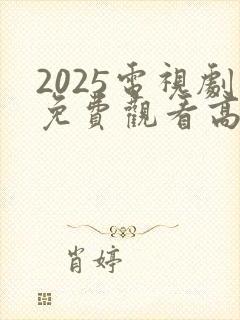 2025電視劇
免費觀看高
肖婷